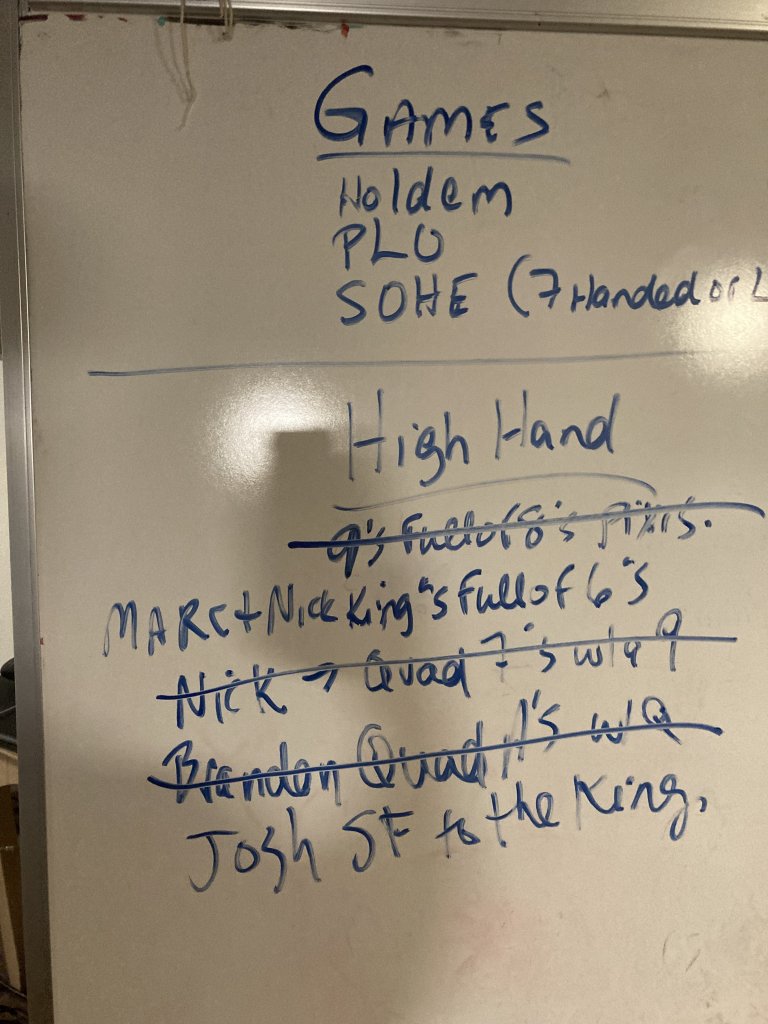 GAMES
Holdem
PLO
SOHE (7 Handed or L
High Hand
9's Full of 8's
MARC + Nick King's Full of 6's
Nick → Quad 7's w/a 9
Brandon Quad A's w/Q
Josh SF to the King.